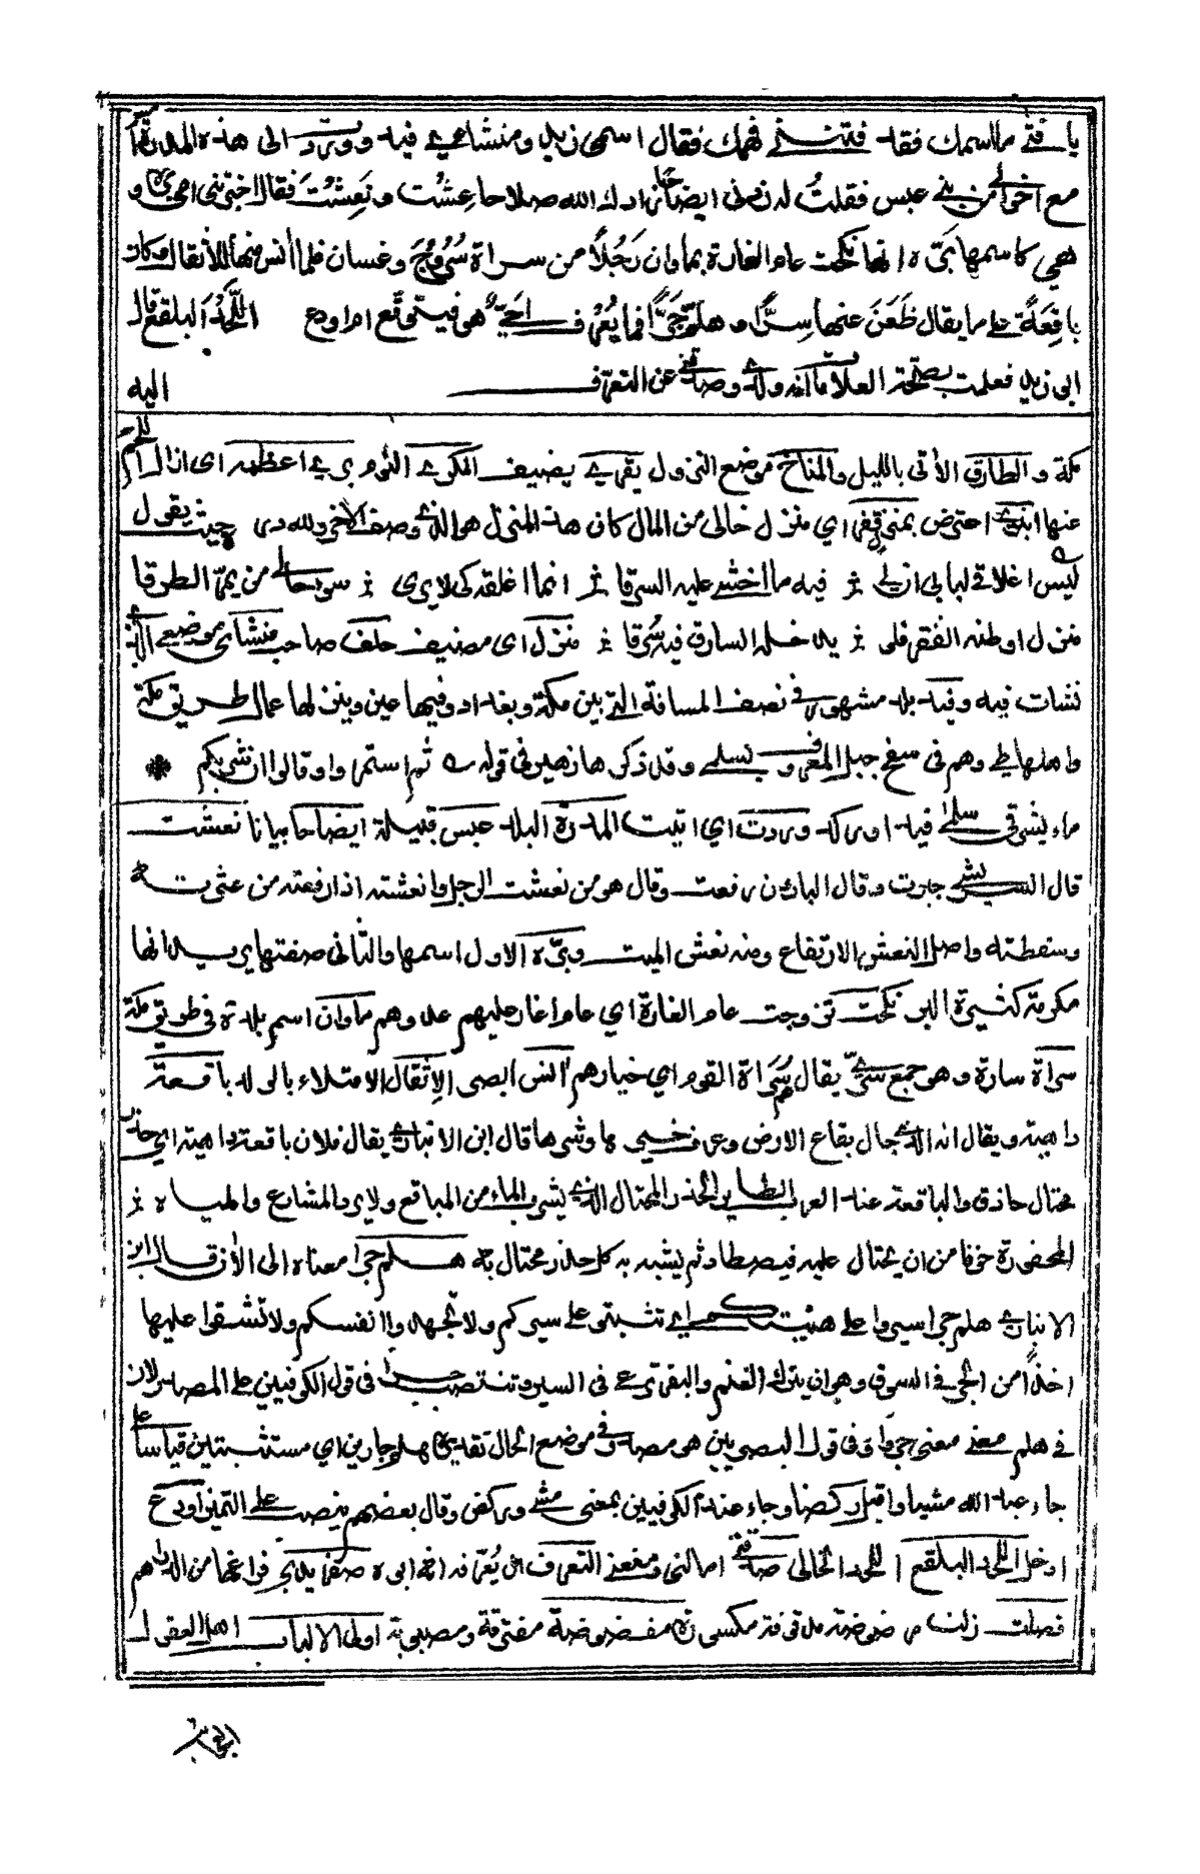 يا فتى ما اسمك فقد فتنني فهمك فقال اسمي زيد ومنشاءي فيد ووردت الى هذه المدرة
مع اخوالي من بني عبس فقلتُ له زدني ايضاحا زادك الله صلاحا عِشْت ونَعِشْتَ فقال اخبرتني امي برة و
هي كاسمها بَرّه انها نكحت عام الغارة بماوان رَجُلاً من سراة سُرُوجَ وغسان فلما انس منها الاثقال وكان
باقِعَةً على ما يقال ظَعَنَ عنها سِرًّا وهلم جَرًّا فما يُعْرف احَيٌّ هو فيتوقع ام اودع اللَّحْدَ البلقع قال
ابو زيد فعلمت بصحة العلامات انه ولدي وصدفني عن التعرف اليه
مكة والطارق الاتي بالليل والمناخ موضع النزول يقري يضيف الكرى النوم بري اعظمه اى ازال اللحم
عنها انبرى اعترض بمنزل قفر اي منزل خالى من المال كان هذا المنزل هو الذي وصف الاخر ولله در حيث يقول
ليس اغلاقي لبابي ان لي فيه ما اخشى عليه السرقا انما اغلقه كى لا يرى سوء حالي من يمر الطرقا
منزل اوطنه الفقر فلو يدخل السارق فيه سُرقا منزل اى مضيف حلف صاحب منشاى موضعي الذي
نشات فيه وفيد بلد مشهور في نصف المسافة التي بين مكة وبغداد وفيها عين وينزلها عمال طريق مكة
واهلها طي وهم فى سفح جبلهم المعروف بسلمى وقد ذكرها زهير فى قوله ثم استمروا وقالوا ان شربكم
ماء بشرقي سلمى فيد او ركد وردت اي اتيت المدرة البلد عبس قبيلة ايضاحا بيانا نعشت
قال الشريشي جبرت وقال الباذن رفعت وقال هو من نعشت الرجل وانعشته اذا رفعته من عثرته
وسقطته واصل النعش الارتفاع ومنه نعش الميت وبرّه الاول اسمها والثانى صفتها يريد انها
مكرمة كثيرة البر نكحت تزوجت عام الغارة اي عام اغار عليهم عدوهم ماوان اسم بلدة فى طريق مكة
سراة سادة وهو جمع سريّ يقال سُرَاة القوم اي خيارهم انس ابصر الاثقال الامتلاء بالولد باقعة
داهية ويقال انه الذي جال بقاع الارض وعرف خيرها وشرها قال ابن الانباري يقال فلان باقعة داهية اي حذر
محتال حاذق والباقعة عند العرب الطاير الحذر المحتال الذي يشرب الماء من المباقع ولا يرد المشارع والمياه
المحضورة خوفا من ان يحتال عليه فيصطاد ثم يشبه به كل حذر محتال هلم جرا معناه الى الان قال ابن
الانباري هلم جرا سيروا على هينتكم اي تثبتوا على سيركم ولا تجهدوا انفسكم ولا تشقوا عليها
اخذًا من الجر في السوق وهو ان يترك الغنم والبقر ترعى فى السير وتنتصب جرا فى قول الكوفيين على المصدر لان
في هلم معنى جروا وفى قول البصريين هو مصدر في موضع الحال تقديره هلموا جارين اي مستثبتين قياسا على
جاء عبد الله مشيا واقبل ركضا وجاء عند الكوفيين بمعنى مشى وركض وقال بعضهم ينصب على التميز اودع
ادخل اللحد البلقع اللحد الخالى صدفني امالنى ومنعني التعرف ان يُعرّفه اني ابوه صفر يدي فراغها من الدراهم
فصلت زلت مرضوضة مدقوقة مكسورة مفضوضة مفترقة ومصبوبة اولى الالباب اهل العقول